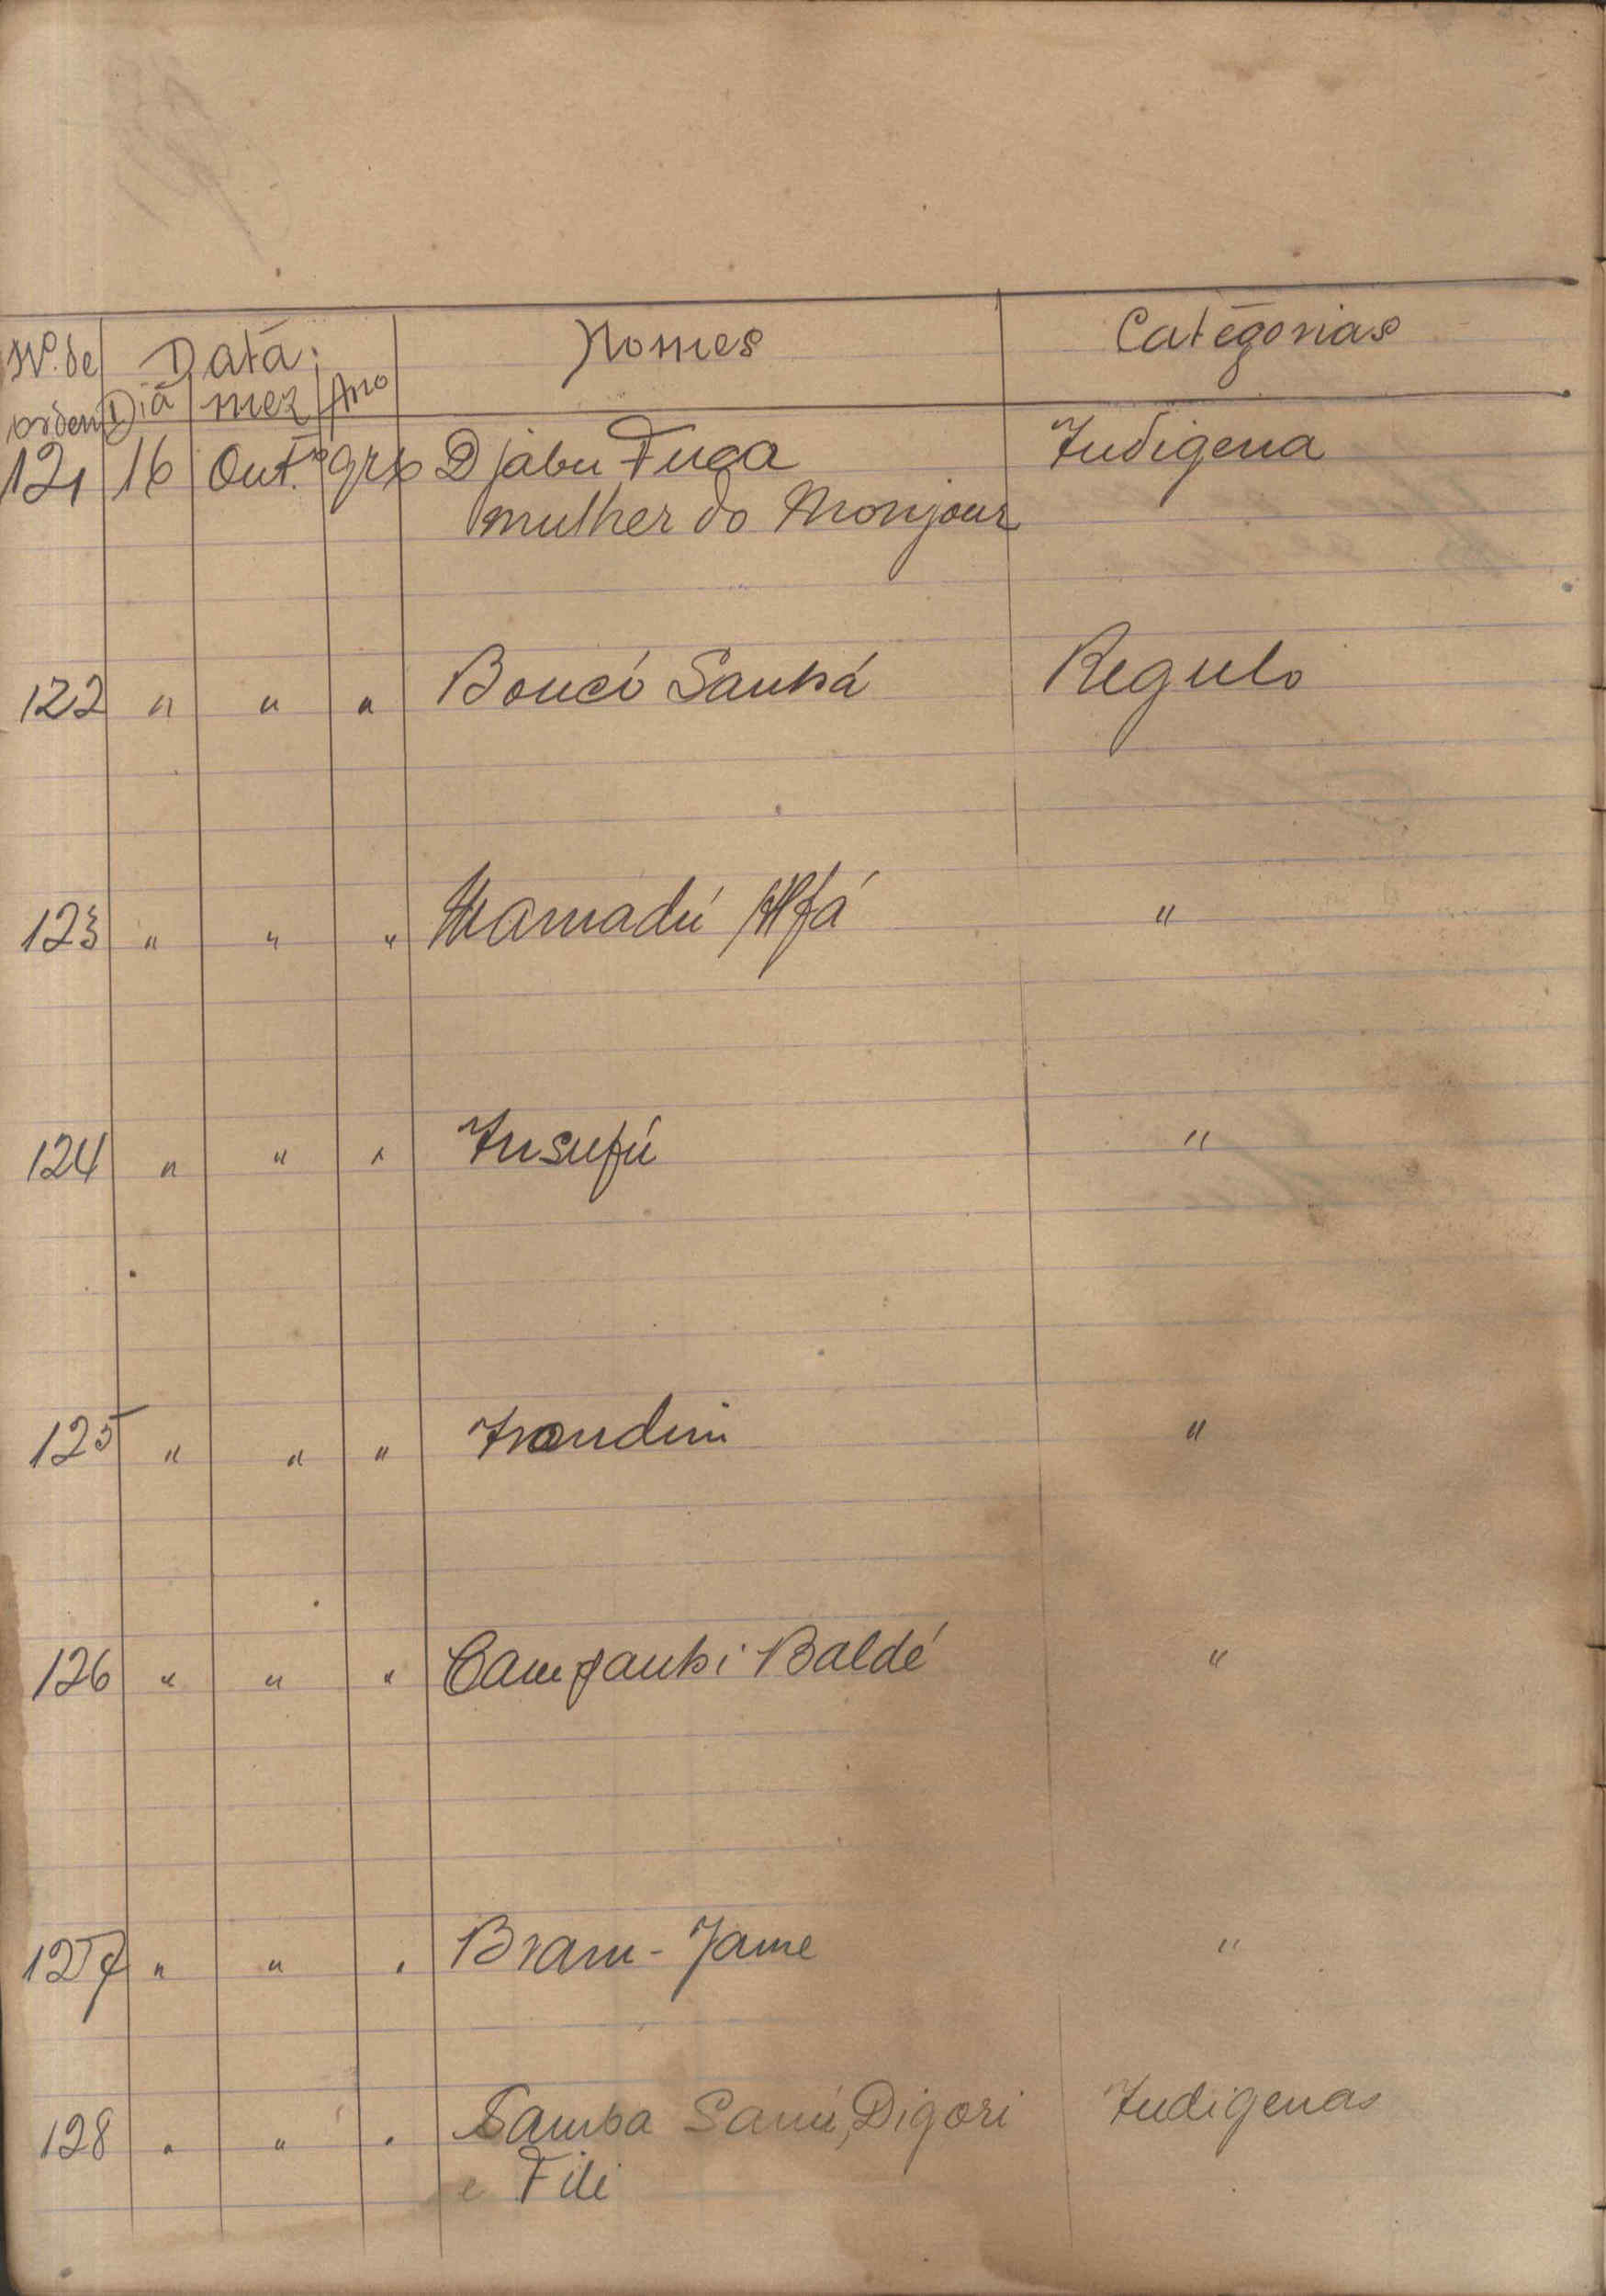 Nº. de Data. Nomes Catégorias
ordem Dia mez Ano
121 16 Out.º Djabu Fuca Indigena
mulher do Monjour
122 " " " Boncó Sanhá Regulo
123 " " " Mamadú Alfá "
124 " " " Insufú "
125 " " " "
126 " " " Campanhi Baldé "
127 " " " Bram-Jame "
128 " " " Samba Sanú, Digori Indigenas
e Fili